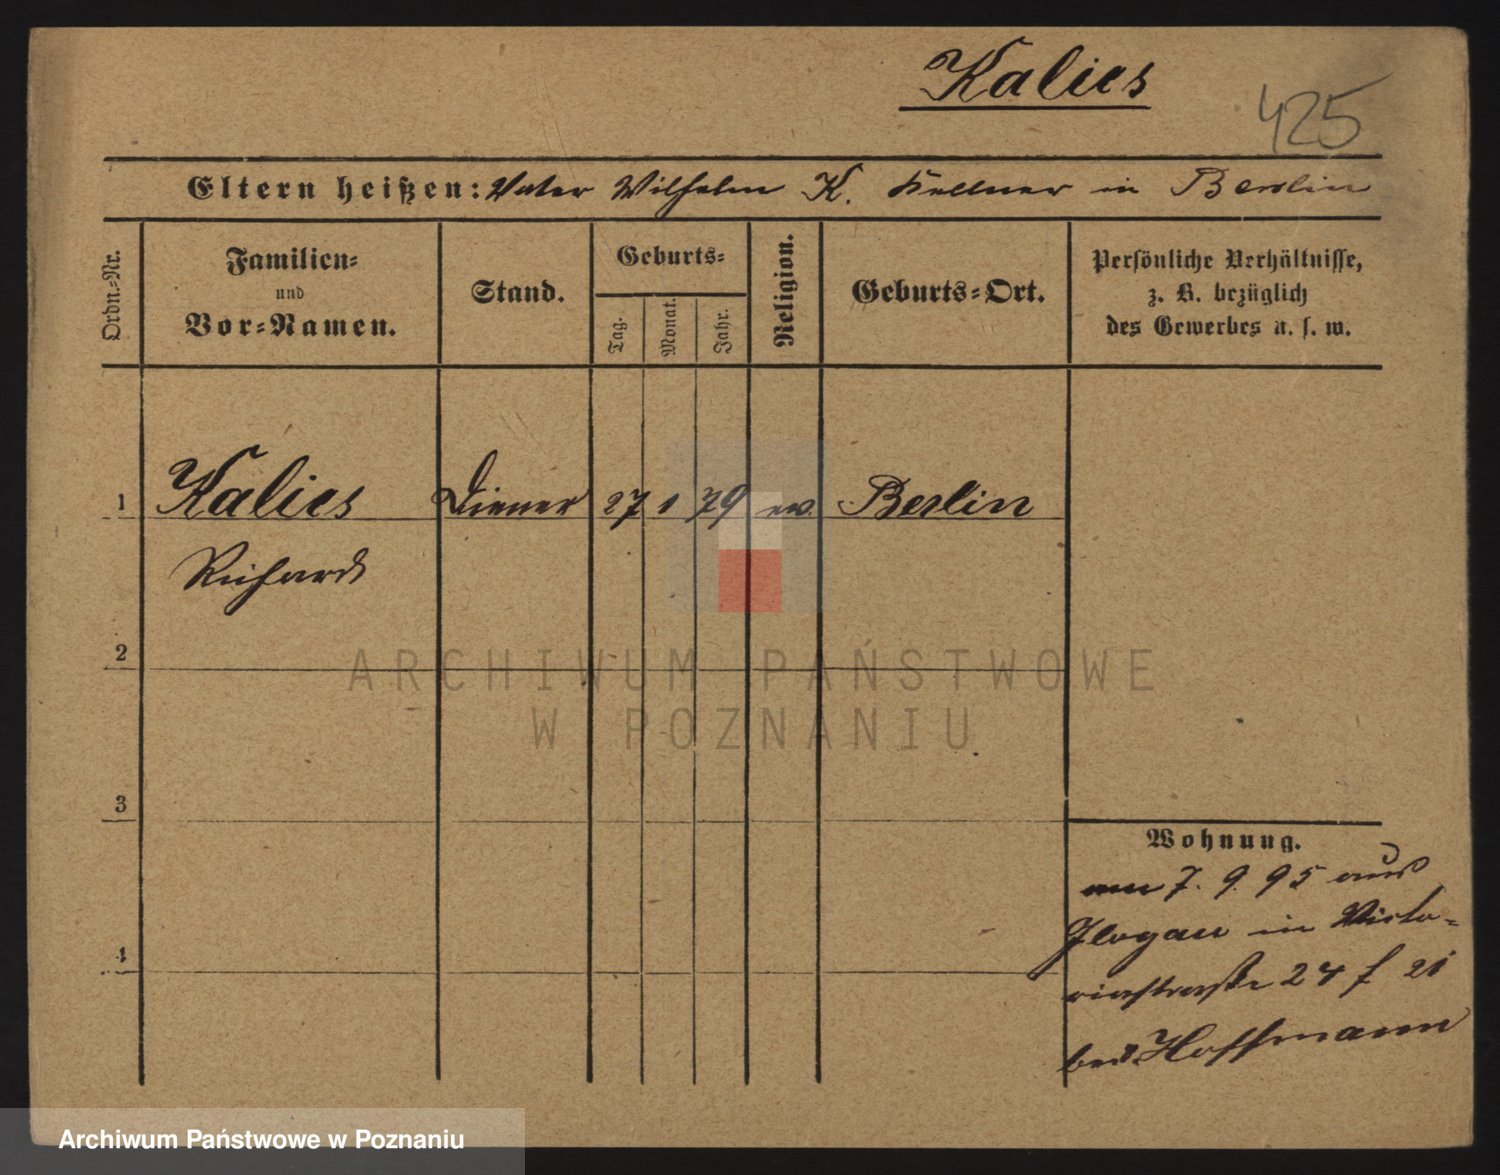 Kalies
425
Eltern heißen: Vater Wilhelm K. Kellner in Berlin
Ordn.-Nr.
Familien-
und
Vor-Namen.
Stand.
Geburts-
Tag.
Monat.
Jahr.
Religion.
Geburts-Ort.
Persönliche Verhältnisse,
z. B. bezüglich
des Gewerbes u. s. w.
1 Kalies Diener 27 1 79 ev. Berlin
Richard
2
3
4
Wohnung.
am 7. 9. 95 aus
Glogau in Victo-
riastraße 24 f 21
bei Hoffmann
ARCHIWUM PAŃSTWOWE
W POZNANIU
Archiwum Państwowe w Poznaniu